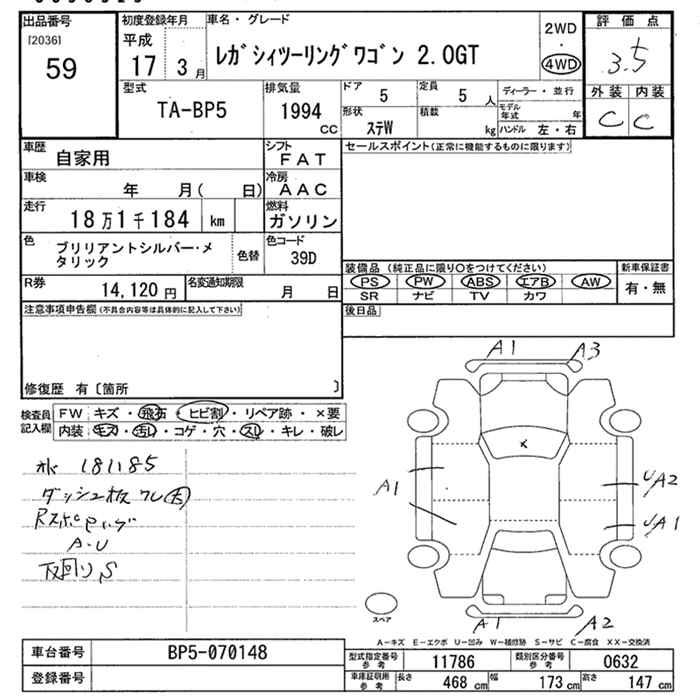 出品番号
[2036]
59
初度登録年月
平成
17 3 月
車名・グレード
ﾚｶﾞｼｨﾂｰﾘﾝｸﾞﾜｺﾞﾝ 2.0GT
2WD
・
4WD
評価点
3.5
外装 内装
C C
型式
TA-BP5
排気量
1994 cc
ドア 5
定員 5 人
形状 ｽﾃW
積載 kg
ディーラー・並行
モデル年式 年
ハンドル 左・右
車歴 自家用
シフト FAT
車検 年 月( 日)
冷房 AAC
走行 18万1千184 km
燃料 ガソリン
色 ブリリアントシルバー・メタリック
色替
色コード 39D
R券 14,120 円
名変通知期限 月 日
セールスポイント(正常に機能するものに限ります)
装備品 (純正品に限り○をつけてください)
新車保証書
PS PW ABS エアB AW
SR ナビ TV カワ
有・無
後日品
注意事項申告欄(不具合内容等は具体的に記入して下さい)
修復歴 有〔箇所 〕
検査員記入欄
FW キズ・飛石・ヒビ割・リペア跡・×要
内装 キズ・汚レ・コゲ・穴・スレ・キレ・破レ
181185
A・U
下回り、S
A1 A3
×
A1
UA2
UA1
スペア
A1 A2
A-キズ E-エクボ U-凹み W-補修跡 S-サビ C-腐食 XX-交換済
車台番号 BP5-070148
登録番号
型式指定番号参考 11786
類別区分番号参考 0632
車庫証明用参考
長さ 468 cm
幅 173 cm
高さ 147 cm